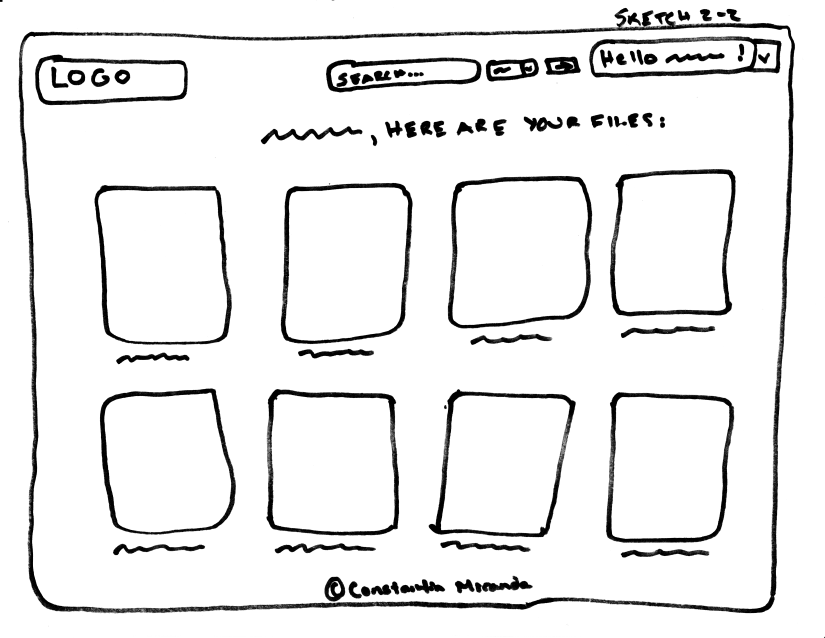 SKETCH 2-2
LOGO
SEARCH...
Hello !
, HERE ARE YOUR FILES:
© Constantin Miranda